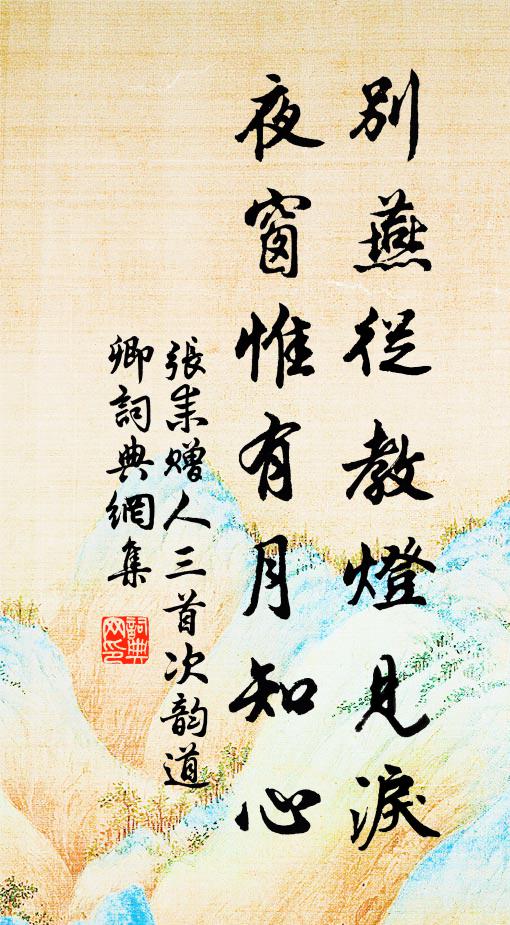 別燕從教燈見淚
夜窗惟有月知心
張耒贈人三首次韵道
卿詞典網集
詞典
网印